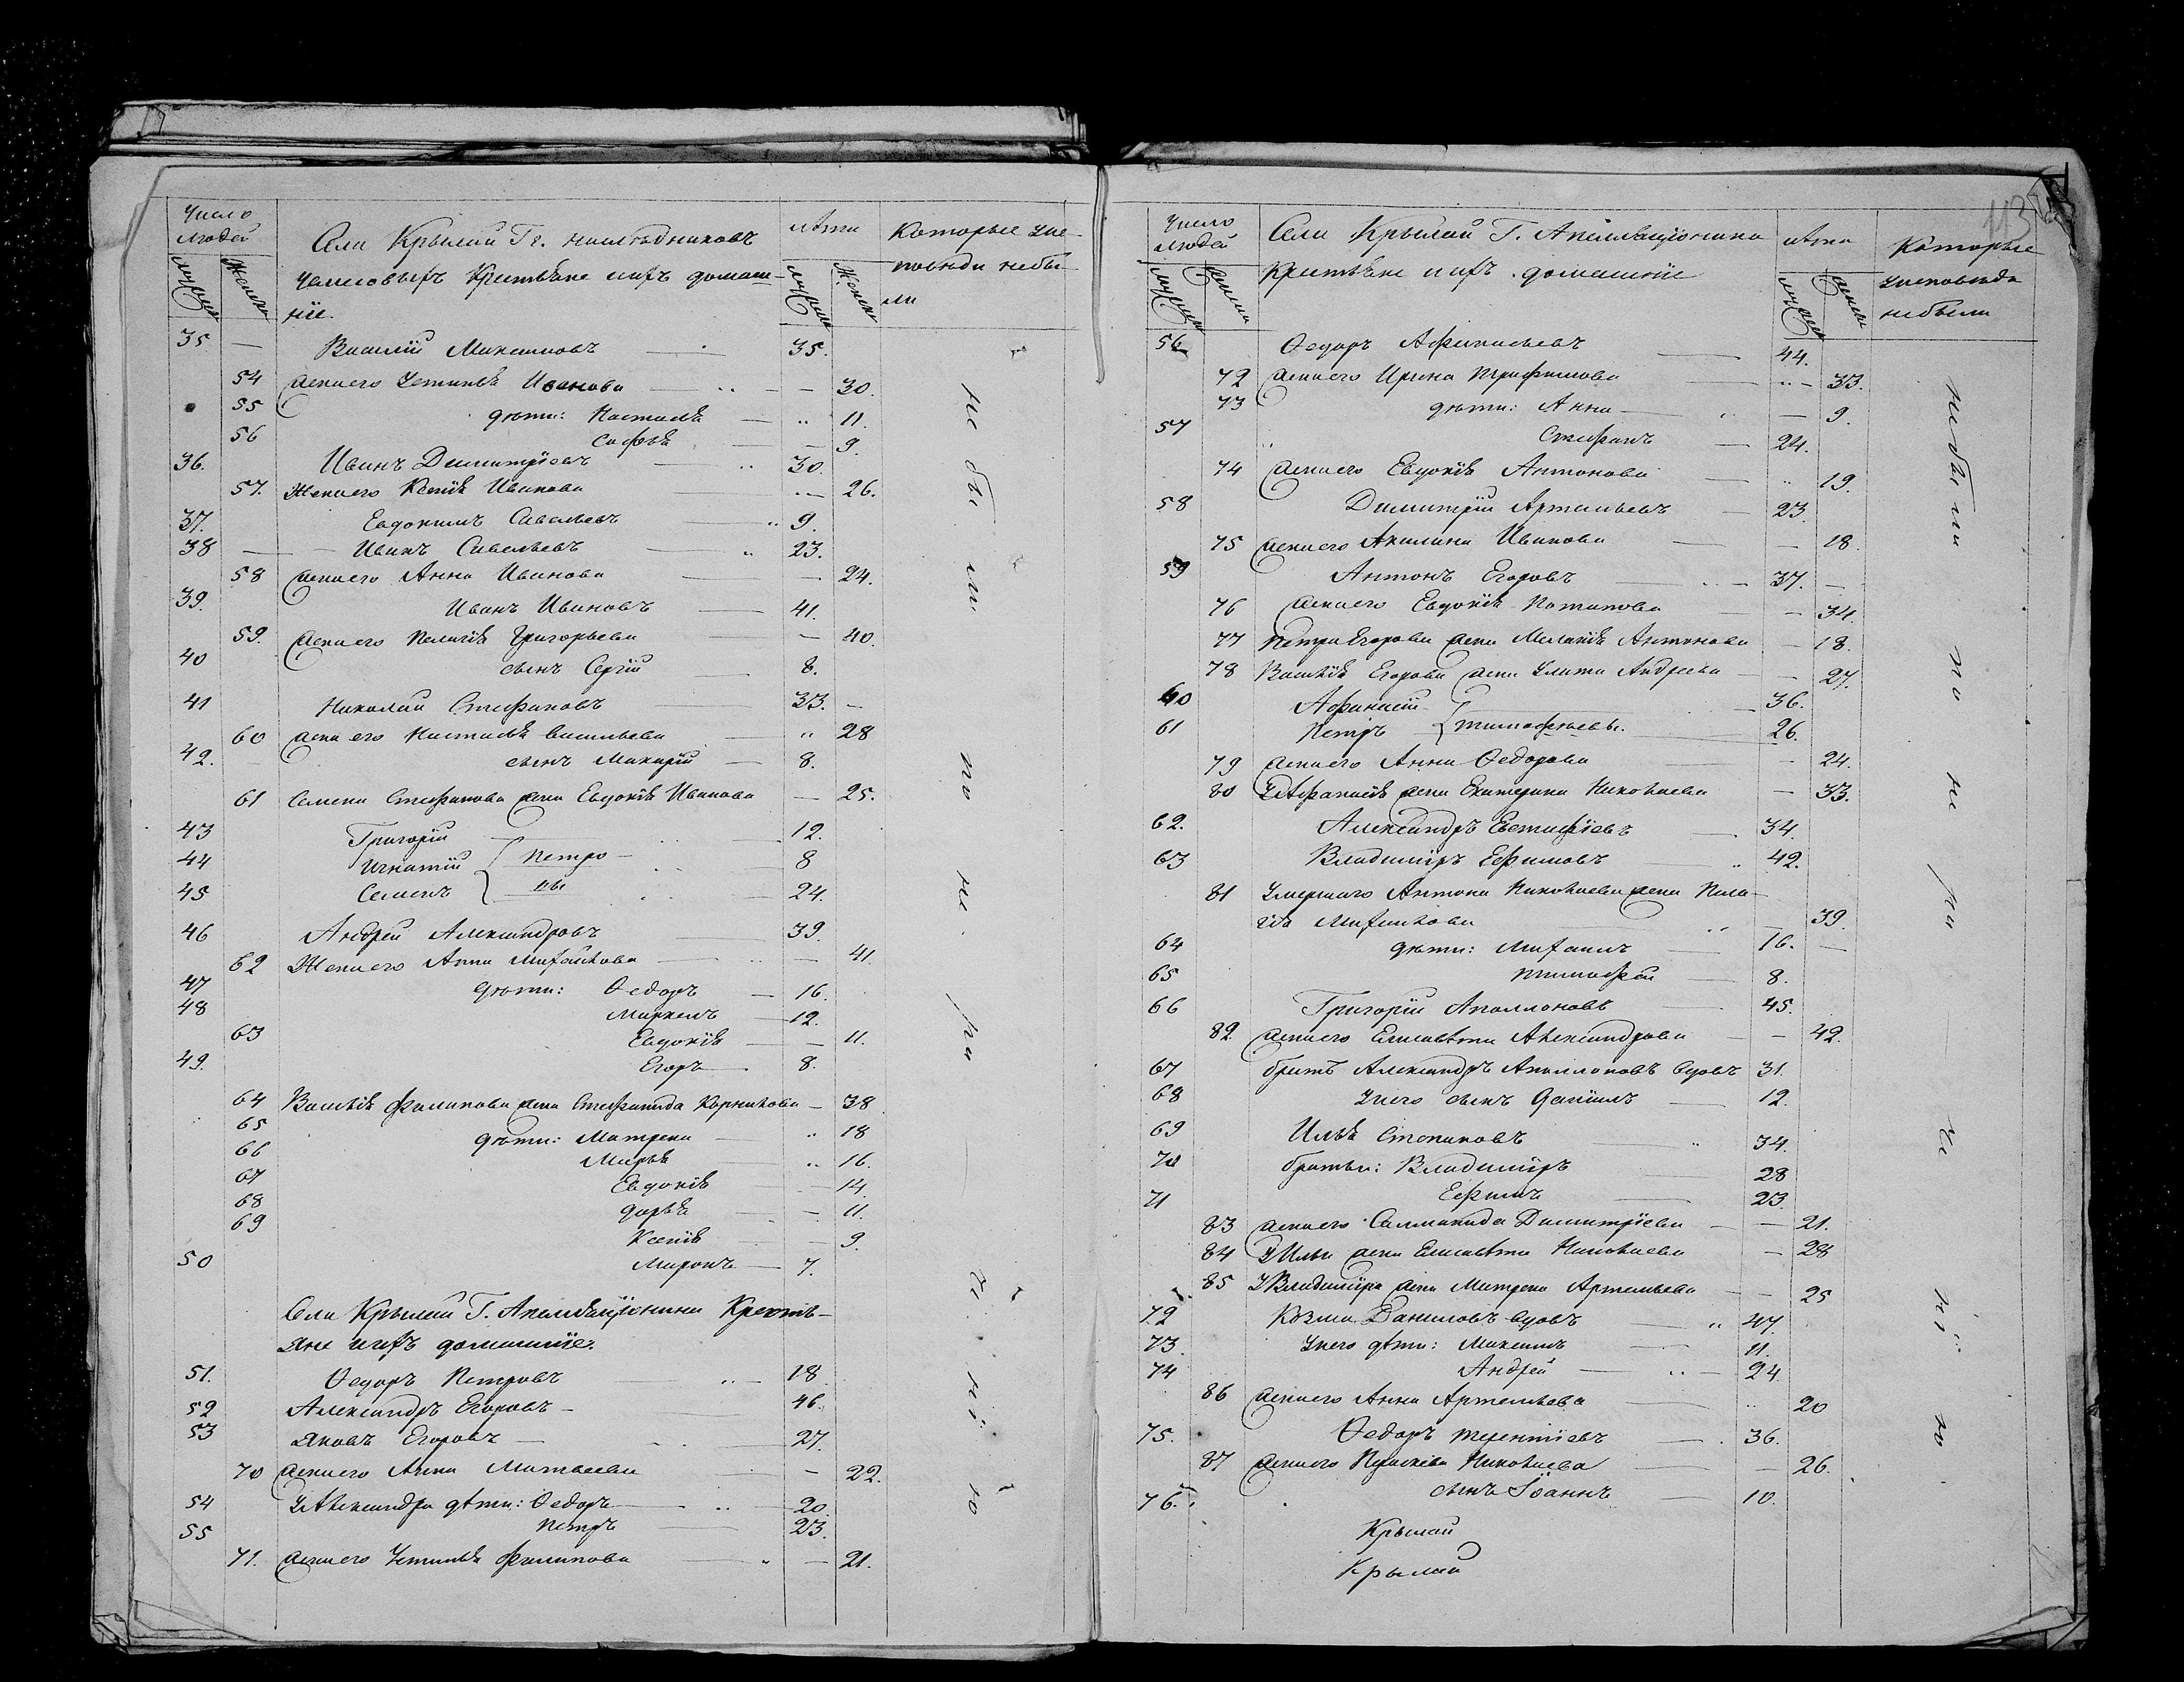 Число людей
мужска
женска
Села Крылай Гг. наследниковъ
лѣта
мужска
женска
Которые у испо-
вѣди небы-
ли
Крестьяне ихъ домаш-
ніе.
35 — Василій Максимовъ — 35.
54 жена его Устинья Иванова — 30.
55 дѣти: Настасья — 11.
56 Софья — 9.
36. Иванъ Димитріевъ — 30.
57. Жена его Ксенія Иванова — 26.
37. Евдокимъ Савельевъ — 9.
38 — Иванъ Савельевъ — 23.
58 жена его Анна Иванова — 24.
39. Иванъ Ивановъ — 41.
59. жена его Пелагія Григорьева — 40.
40 сынъ Сергій 8.
41 Николай Стефановъ — 33. —
60 жена его Настасья Васильева — 28
42. сынъ Макарій — 8.
61 Семена Стефанова жена Евдокія Иванова — 25.
43 Григорій — 12.
44 Игнатій { Петро- 8
45 Семенъ { вы 24.
46 Андрей Александровъ — 39.
62 Жена его Анна Михайлова — 41.
47 дѣти: Ѳедоръ — 16.
48 Маркелъ — 12.
63 Евдокія — 11.
49. Егоръ — 8.
64 Василія Филипова жена Стефанида Корнилова — 38
65 дѣти: Матрена — 18
66 Марья — 16.
67 Евдокія — 14.
68 Дарья — 11.
69 Ксенія — 9.
50 Миронъ — 7.
Села Крылай Г. Крестья-
яне ихъ домашніе.
51. Ѳедоръ Петровъ — 18.
52 Александръ Егоровъ — 46.
53 Яковъ Егоровъ — 27.
70 жена его Анна Матвеева — 22.
54 У Александра дѣти: Ѳедоръ — 20.
55 Петръ — 23.
71. жена его Устинья Филипова — 21.
не бы ли по не ра че нію
113
Число людей
мужска
женска
Села Крылай Г.
лѣта
мужска
женска
Которые
Крестьяне ихъ домашніе
у исповѣди
небыли
56 Ѳедоръ Афанасьевъ — 44.
72 жена его Ирина Трифимова — 33.
73 дѣти: Анна — 9.
57 Стефанъ — 24.
74 жена его Евдокія Антонова — 19.
58 Димитрій Артемьевъ — 23.
75 жена его Акилина Иванова — 18.
59 Антонъ Егоровъ — 37. —
76 жена его Евдокія Потапова — 34.
77 Петра Егорова жена Меланія Антонова — 18.
78 Василія Егорова жена Улита Андреева — 27.
60 Афанасій — 36.
61 Петръ { Тимофѣевы. 26.
79 жена его Анна Ѳедорова — 24.
80 У Афанасія жена Екатерина Николаева — 33.
62. Александръ Евстифіевъ — 34.
63 Владиміръ Ефимовъ — 42.
81 Умершаго Антона Николаева жена Пела-
гія Михайлова — 39.
64 дѣти: Михаилъ — 16. —
65 Тимофей — 8.
66 Григорій Аполлоновъ — 45.
82 жена его Елисавета Александрова — 42.
67 братъ Александръ Аполлоновъ вдовъ 31.
68 У него сынъ Даніилъ — 12.
69 Илья Степановъ — 34.
70 братья: Владиміръ 28
71 Ефимъ — 23.
83 жена его Саломанида Димитріева — 21.
84 У Ильи жена Елисавета Николаева — 28
85 У Владиміра жена Матрена Артемьева — 25
72 Козма Даниловъ вдовъ — 47.
73. У него дѣти: Максимъ — 11.
74 Андрей — 24.
86 жена его Анна Артемьева — 20
75. Ѳедоръ Терентіевъ — 36.
87 жена его Параскева Николаева — 26.
76. сынъ Іоаннъ — 10.
Крылай
Крылай
небыли по не ра че нію.